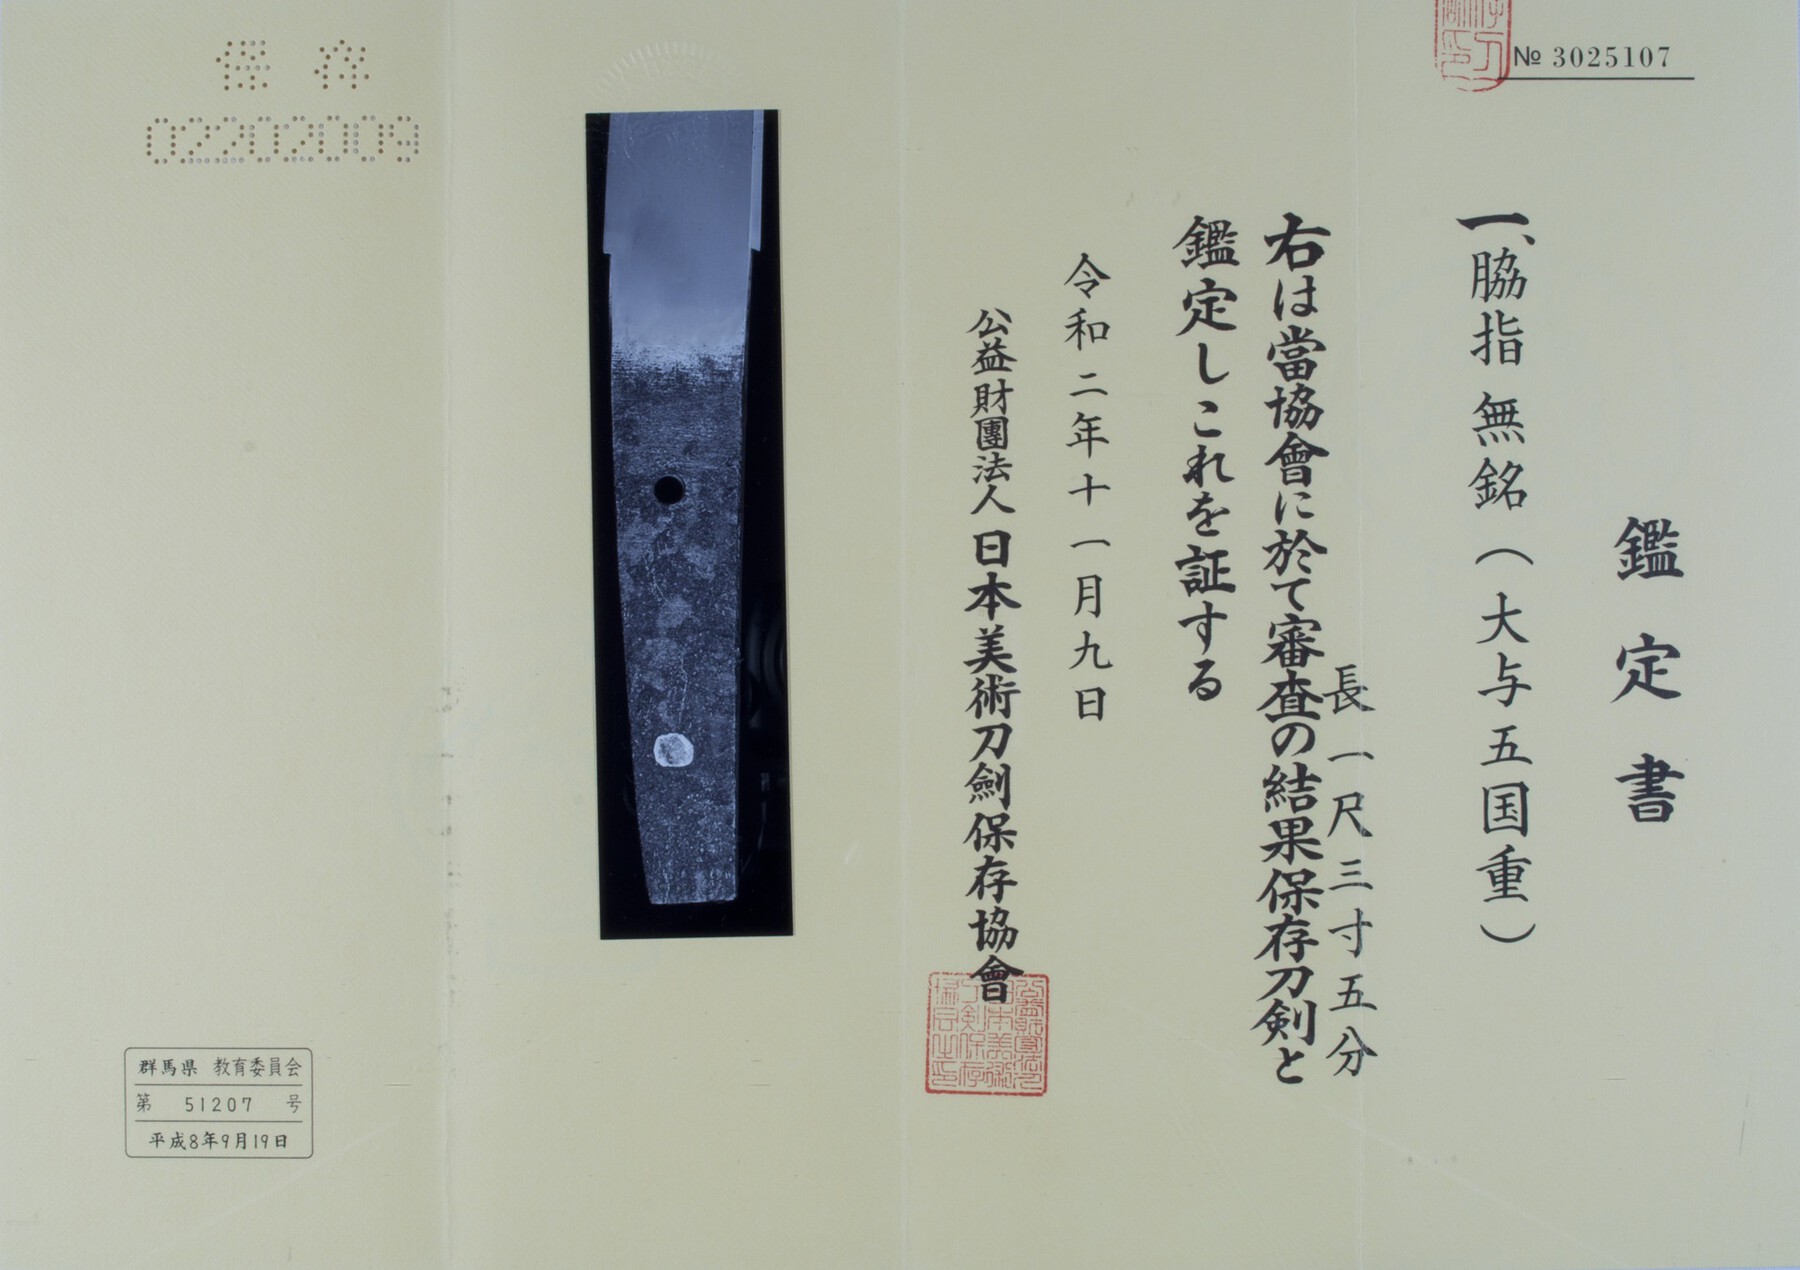 № 3025107
鑑定書
一、脇指 無銘（大与五国重）
長一尺三寸五分
右は當協會に於て審査の結果保存刀剣と
鑑定しこれを証する
令和二年十一月九日
公益財團法人 日本美術刀劍保存協會
保存
02202009
群馬県 教育委員会
第 51207 号
平成8年9月19日